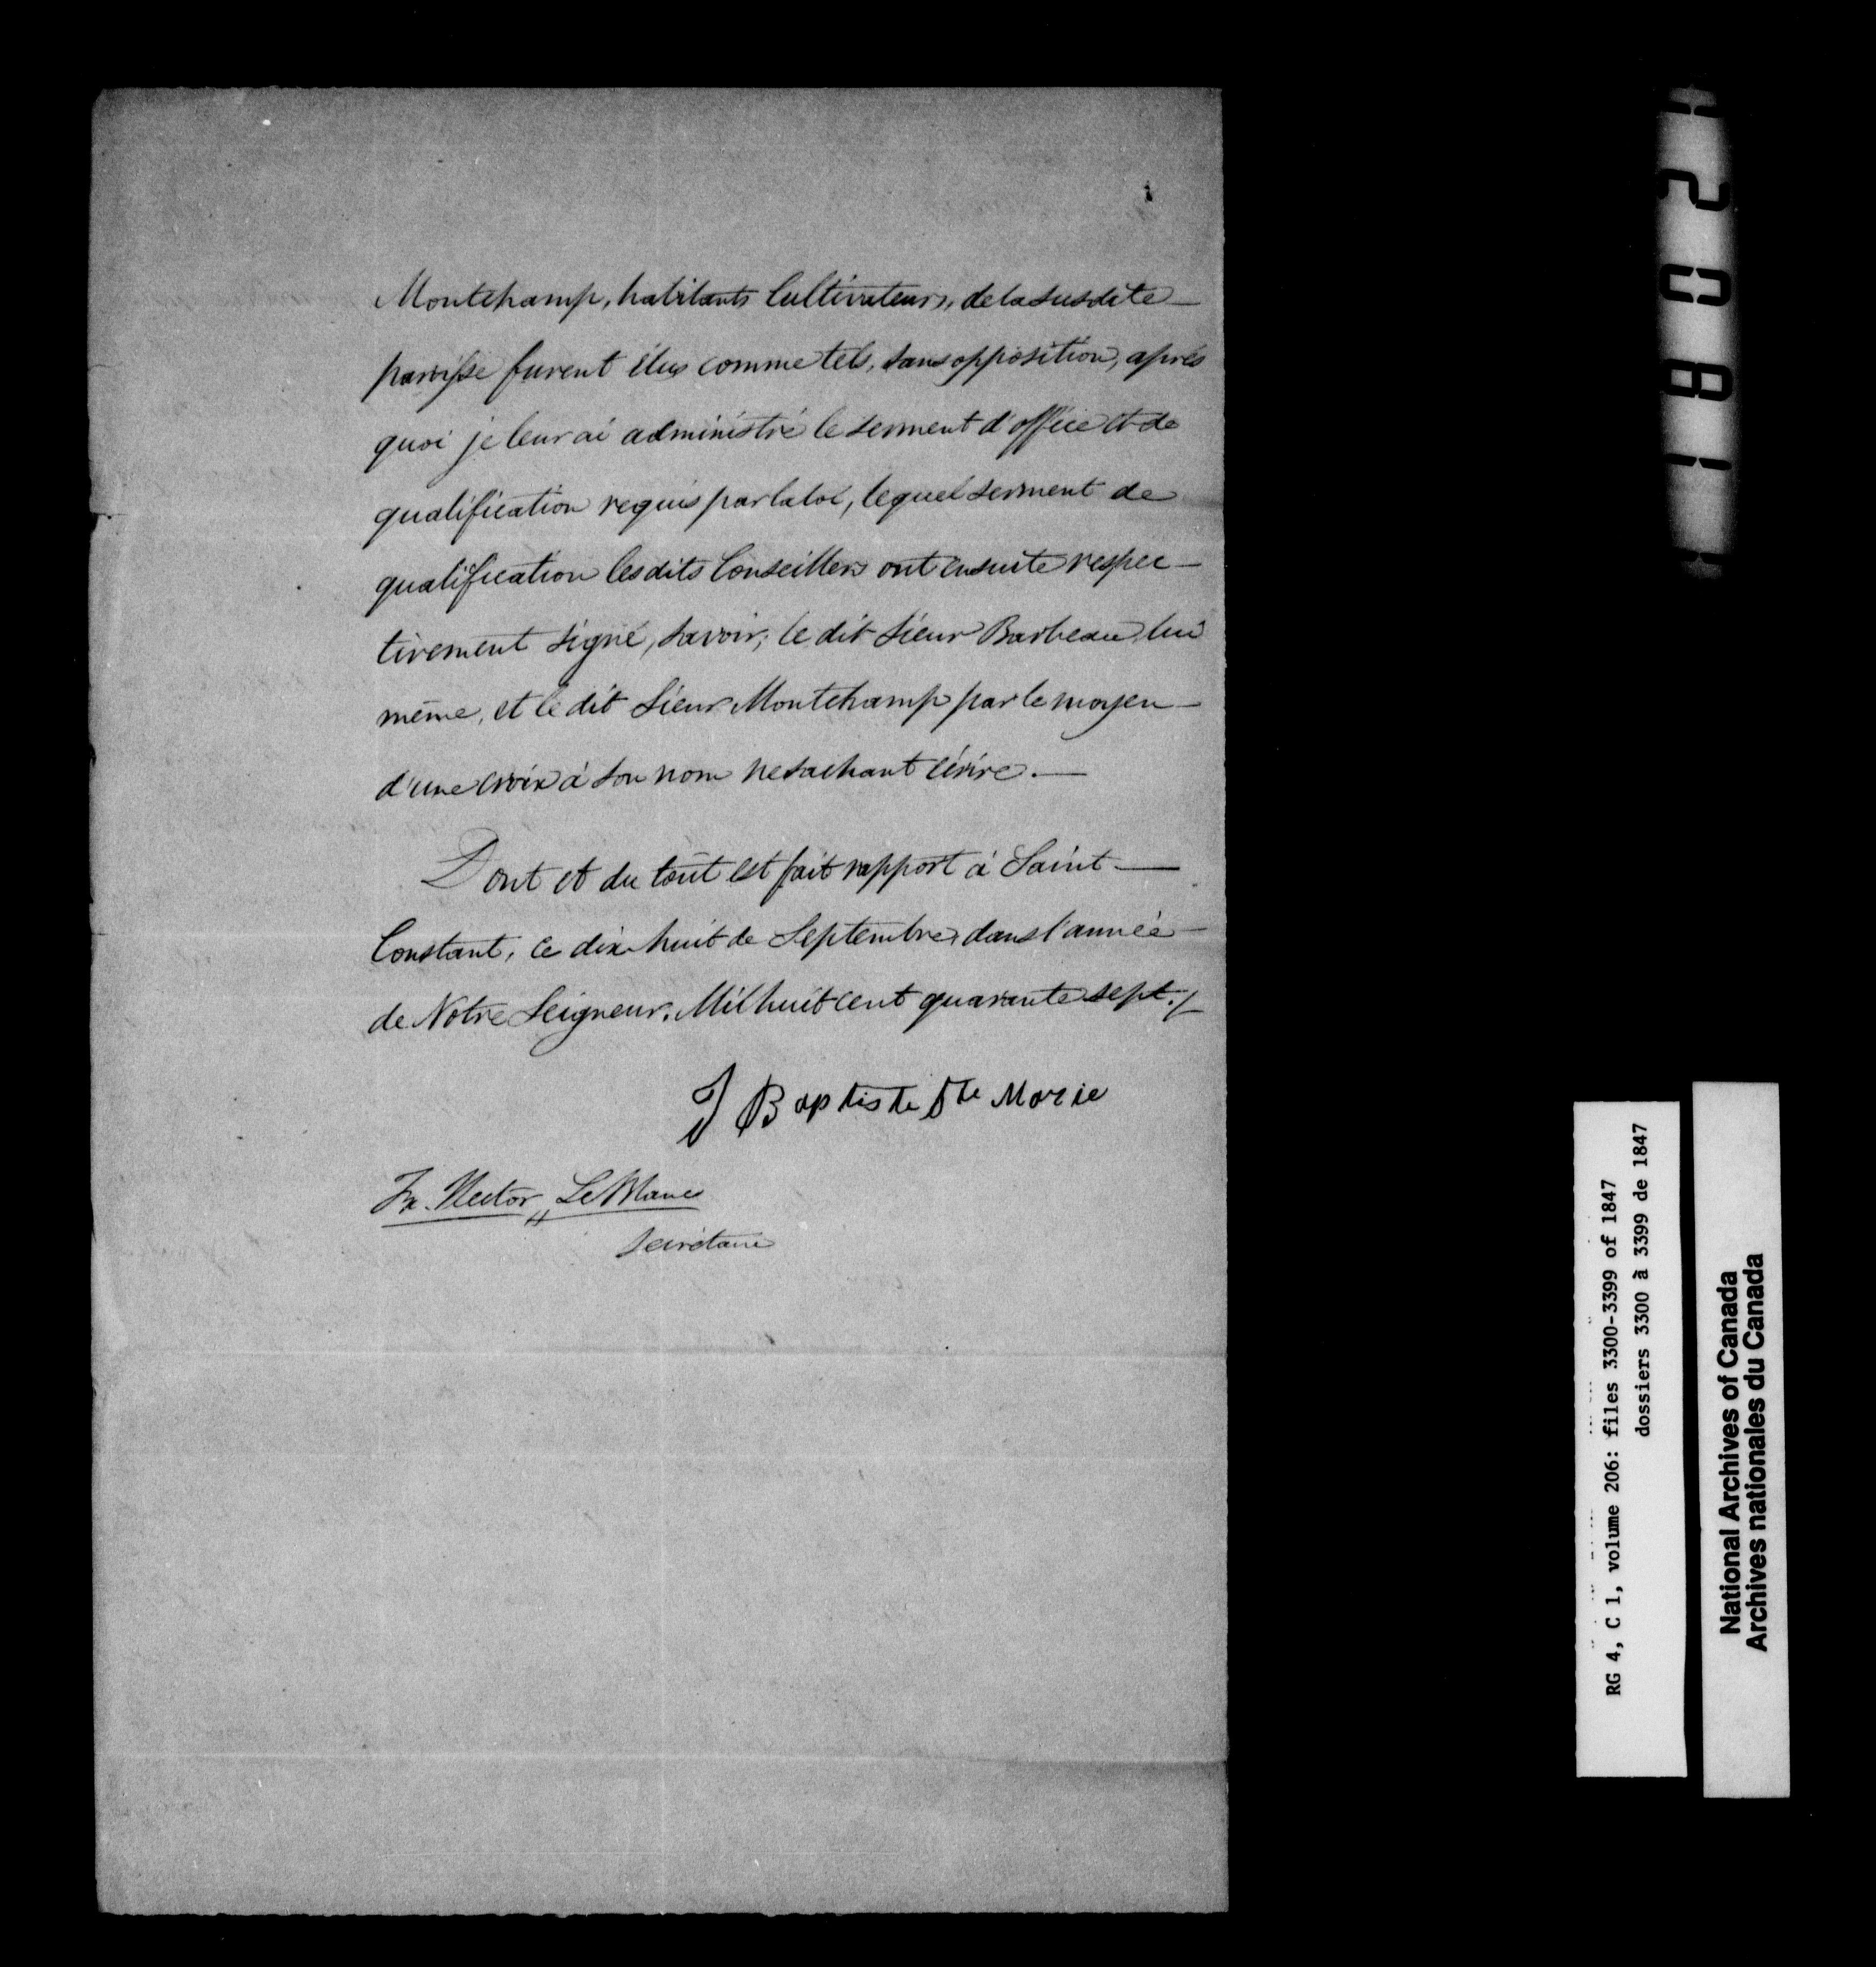 Montchamp, habitants Cultivateurs, de la susdite —
paroisse furent élus comme tels, sans opposition, après
quoi je leur ai administré le serment d'office et de
qualification requis par la loi, lequel serment de
qualification les dits Conseillers ont ensuite respec —
tivement signé, savoir; le dit Sieur Barbeau lui
même, et le dit Sieur Montchamp par le moyen —
d'une croix à son nom ne sachant écrire. —
Dont et du tout est fait rapport à Saint —
Constant, ce dix huit de Septembre, dans l'année —
de Notre Seigneur, Mil huit cent quarante sept./
J Baptiste Ste Marie
Fx. Hector LeBlanc
Secrétaire
1802
RG 4, C 1, volume 206: files 3300-3399 of 1847
dossiers 3300 à 3399 de 1847
National Archives of Canada
Archives nationales du Canada